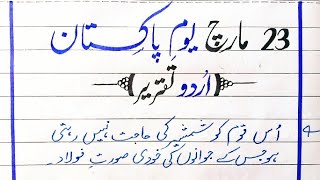 23 مارچ یومِ پاکستان
اُردو تقریر
اُس قوم کو شمشیر کی حاجت نہیں رہتی
ہو جس کے جوانوں کی خودی صورتِ فولاد۔